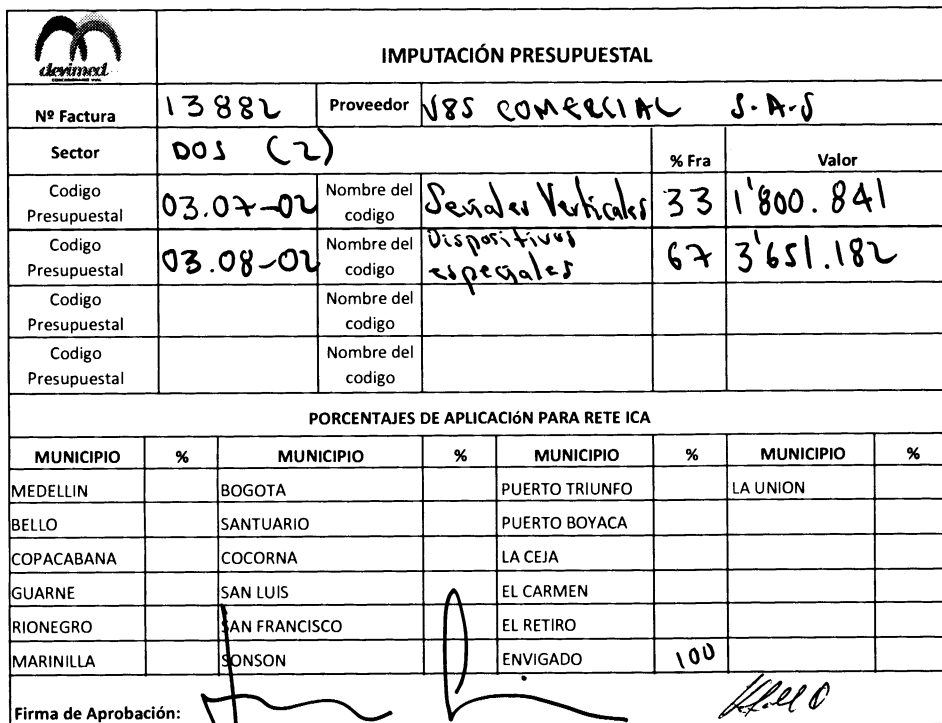 devimed
IMPUTACIÓN PRESUPUESTAL
Nº Factura 13882 Proveedor V8S COMERCIAL S.A.S
Sector DOS (2) % Fra Valor
Codigo Presupuestal 03.07-02 Nombre del codigo Señales Verticales 33 1'800.841
Codigo Presupuestal 03.08-02 Nombre del codigo Dispositivos especiales 67 3'651.182
Codigo Presupuestal Nombre del codigo
Codigo Presupuestal Nombre del codigo
PORCENTAJES DE APLICACIóN PARA RETE ICA
MUNICIPIO % MUNICIPIO % MUNICIPIO % MUNICIPIO %
MEDELLIN BOGOTA PUERTO TRIUNFO LA UNION
BELLO SANTUARIO PUERTO BOYACA
COPACABANA COCORNA LA CEJA
GUARNE SAN LUIS EL CARMEN
RIONEGRO SAN FRANCISCO EL RETIRO
MARINILLA SONSON ENVIGADO 100
Firma de Aprobación: